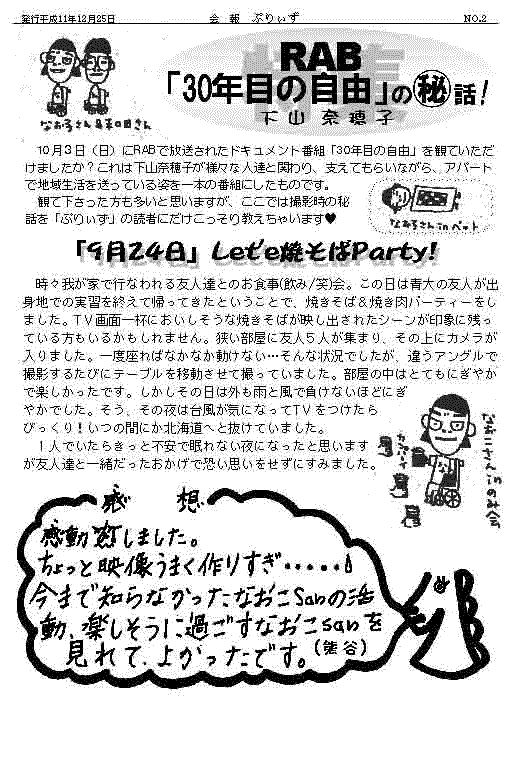 発行平成11年12月25日　会 報　ぶりぃず　NO.2
RAB
「30年目の自由」の㊙話!
下山 奈穂子
なおこさん&その日さん
10月3日（日）にRABで放送されたドキュメント番組「30年目の自由」を観ていただ
けましたか？これは下山奈穂子が様々な人達と関わり、支えてもらいながら、アパート
で地域生活を送っている姿を一本の番組にしたものです。
観て下さった方も多いと思いますが、ここでは撮影時の秘
話を「ぶりぃず」の読者にだけこっそり教えちゃいます♥
なおこさんinベット
「9月24日」Let'e焼そばParty!
時々我が家で行なわれる友人達とのお食事(飲み/笑)会。この日は青大の友人が出
身地での実習を終えて帰ってきたということで、焼きそば＆焼き肉パーティーをし
ました。TV画面一杯においしそうな焼きそばが映し出されたシーンが印象に残っ
ている方もいるかもしれません。狭い部屋に友人5人が集まり、その上にカメラが
入りました。一度座ればなかなか動けない…そんな状況でしたが、違うアングルで
撮影するたびにテーブルを移動させて撮っていました。部屋の中はとてもにぎやか
で楽しかったです。しかしその日は外も雨と風で負けないほどにぎ
やかでした。そう、その夜は台風が気になってTVをつけたら
びっくり！いつの間にか北海道へと抜けていました。
1人でいたらきっと不安で眠れない夜になったと思います
が友人達と一緒だったおかげで恐い思いをせずにすみました。
なおこさんinのみ会
カンパーイ
感　想
感動致しました。
ちょっと映像うまく作りすぎ・・・・・
今まで知らなかったなおこSanの活
動、楽しそうに過ごすなおこsanを
見れて、よかったです。(熊谷)